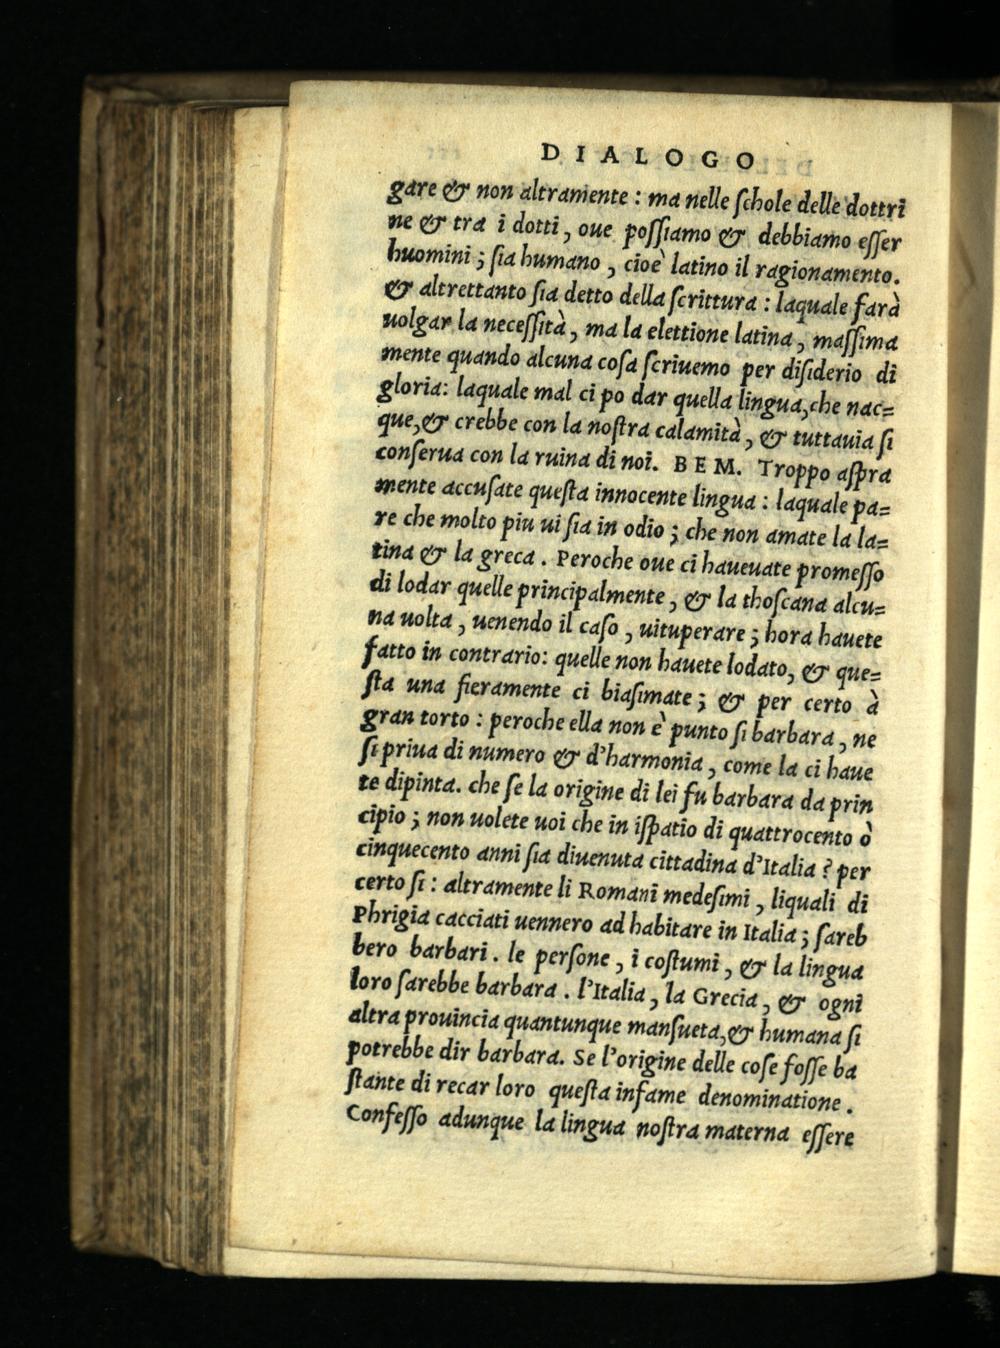 DIALOGO
gare & non altramente : ma nelle ſchole delle dottri
ne & tra i dotti, oue poſſiamo & debbiamo eſſer
huomini ; ſia humano , cioè latino il ragionamento.
& altrettanto ſia detto della ſcrittura : laquale farà
uolgar la neceſſità, ma la elettione latina, maſſima
mente quando alcuna coſa ſcriuemo per diſiderio di
gloria: laquale mal ci po dar quella lingua,che nac=
que,& crebbe con la noſtra calamità, & tuttauia ſi
conſerua con la ruina di noi. BEM. Troppo aſpra
mente accuſate queſta innocente lingua : laquale pa=
re che molto piu ui ſia in odio ; che non amate la la=
tina & la greca . Peroche oue ci haueuate promeſſo
di lodar quelle principalmente, & la thoſcana alcu=
na uolta , uenendo il caſo , uituperare ; hora hauete
fatto in contrario: quelle non hauete lodato, & que=
ſta una fieramente ci biaſimate ; & per certo à
gran torto : peroche ella non è punto ſi barbara, ne
ſi priua di numero & d'harmonia, come la ci haue
te dipinta. che ſe la origine di lei fu barbara da prin
cipio ; non uolete uoi che in iſpatio di quattrocento ò
cinquecento anni ſia diuenuta cittadina d'Italia ? per
certo ſi : altramente li Romani medeſimi , liquali di
Phrigia cacciati uennero ad habitare in Italia ; ſareb
bero barbari . le perſone , i coſtumi , & la lingua
loro ſarebbe barbara . l'Italia, la Grecia, & ogni
altra prouincia quantunque manſueta,& humana ſi
potrebbe dir barbara. Se l'origine delle coſe foſſe ba
ſtante di recar loro queſta infame denominatione .
Confeſſo adunque la lingua noſtra materna eſſere